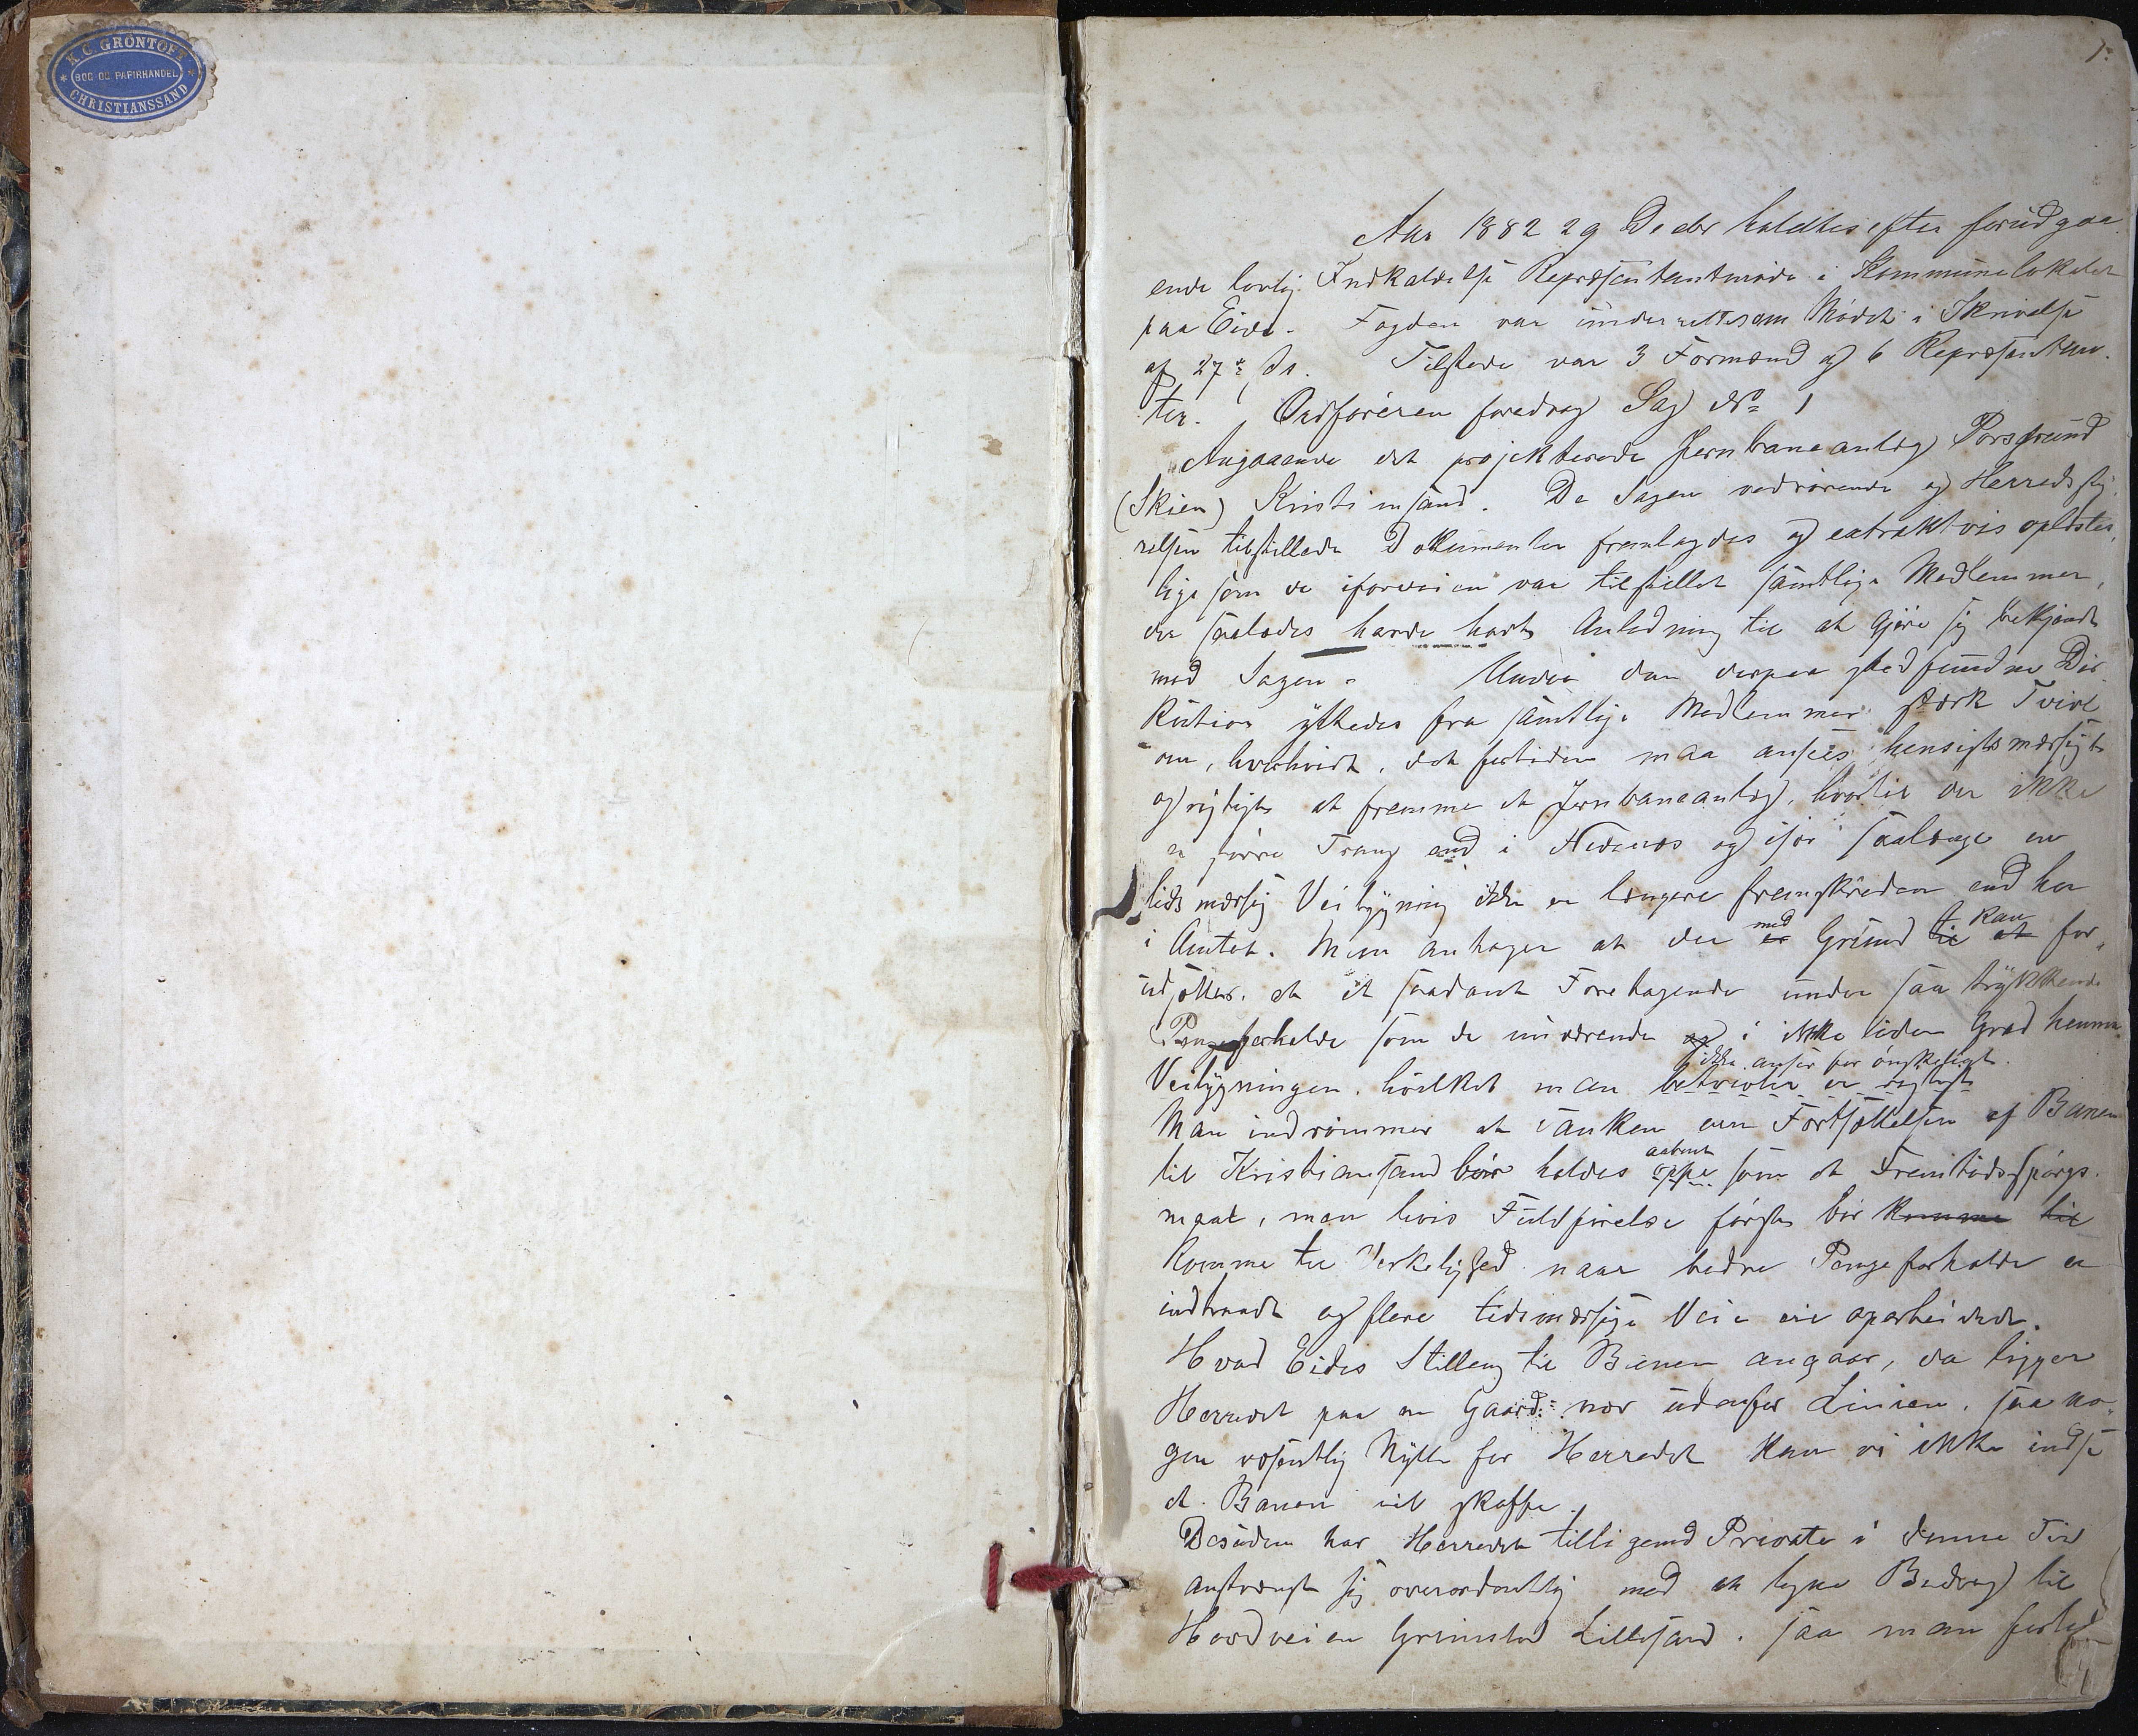 K. C. GRÖNTOFT
BOG OG PAPIRHANDEL
CHRISTIANSSAND
1.
Aar 1882 29 Decbr holdtes efter forudgaa
ende lovlig Indkaldelse Repræsentantmøde i Kommunelokalet
paa Eide. Fogden var underrettet om Mødet i Skrivelse
af 27de ds. Tilstede var 3 Formænd og 6 Repræsentan
ter. Ordføreren foredrog Sag No 1
Angaaende det projekterede Jernbaneanlæg Porsgrund
(Skien) Kristiansand. De Sagen vedrørende og Herredssty
relsen tilstillede Dokumenter fremlagdes og extraktvis oplæstes,
ligesom de iforveien var tilstillet samtlige Medlemmer,
der saaledes havde havt Anledning til at gjøre sig bekjendt
med Sagen. Under den derpaa stedfundne Dis
kution yttredes fra samtlige Medlemmer stærk Tvivl
om, hvorvidt det fortiden maa ansees hensigtsmæssigt
og rigtigt at fremme et Jernbaneanlæg, hvortil der ikke
er større Trang end i Nedenæs og især saalænge en
tidsmæssig Veibygning ikke er længere fremskreden end her
i Amtet. Man antager at der med er Grund til at kan for
udsættes, at et saadant Foretagende under saa trykkende
Pengeforholde som de nuværende og i ikke liden Grad hemme
Veibygningen, hvilket man betvivler er rigtigt
ikke anser for ønskeligt.
Man indrømmer at Tanken om Fortsættelsen af Banen
til Kristiansand bør holdes oppe aabent som et Fremtidsspørgs
maal, men hvis Fuldførelse først bør komme til
komme til Virkelighed naar bedre Pengeforholde er
indtraadt og flere tidsmæssige Veie er oparbeidede.
Hvad Eides Stilling til Banen angaar, da ligger
Herredet paa en Gaard nær udenfor Linien, saa no
gen væsentlig Nytte for Herredet kan vi ikke indse
at Banen vil skaffe.
Desuden har Herredet tilligemed Private i denne Tid
anstrængt sig overordentlig med at tegne Bidrag til
Hovedveien Grimstad Lillesand, saa man